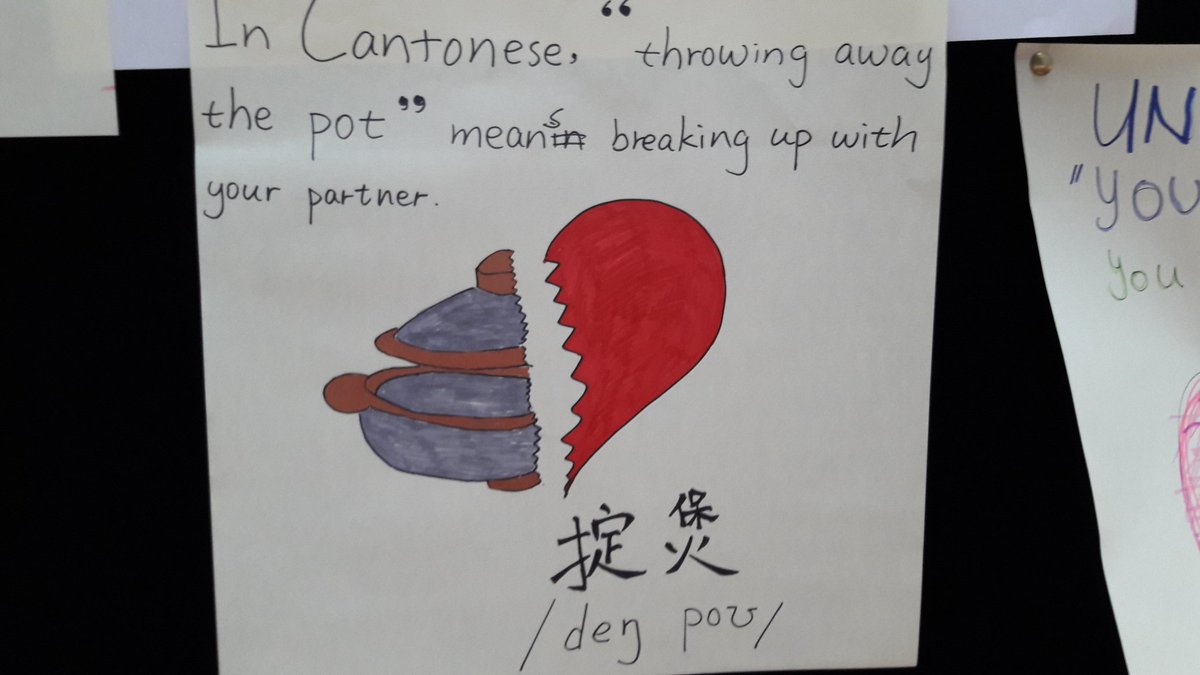 In Cantonese, "throwing away
the pot" means breaking up with
your partner.
掟煲
/deŋ poʊ/
UN
"YOU
you